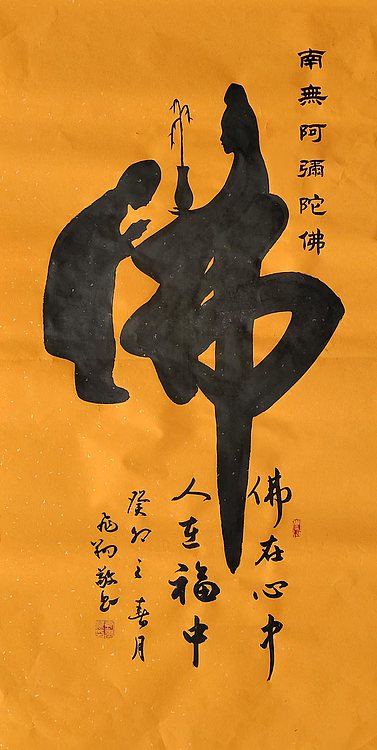 南無阿彌陀佛
佛
佛在心中
人在福中
癸卯之春月
敬書